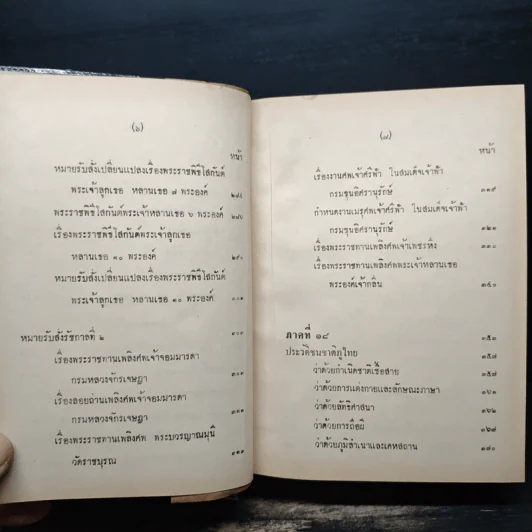 (๖)
หน้า
หมายรับสั่งเปลี่ยนแปลงเรื่องพระราชพิธีโสกันต์
พระเจ้าลูกเธอ หลานเธอ ๗ พระองค์
พระราชพิธีโสกันต์พระเจ้าหลานเธอ ๖ พระองค์ ๒๘๖
เรื่องพระราชพิธีโสกันต์พระเจ้าลูกเธอ
หลานเธอ ๑๐ พระองค์ ๒๙๐
หมายรับสั่งเปลี่ยนแปลงเรื่องพระราชพิธีโสกันต์
พระเจ้าลูกเธอ หลานเธอ ๑๐ พระองค์
หมายรับสั่งรัชกาลที่ ๒
เรื่องพระราชทานเพลิงศพเจ้าจอมมารดา
กรมหลวงจักรเจษฎา
เรื่องลอยถ่านเพลิงศพเจ้าจอมมารดา
กรมหลวงจักรเจษฎา
เรื่องพระราชทานเพลิงศพ พระบวรญาณมุนี
วัดราชบุรณ
(๗)
หน้า
เรื่องงานศพเจ้าศรีฟ้า ในสมเด็จเจ้าฟ้า
กรมขุนอิศรานุรักษ์ ๓๑๙
กำหนดงานเมรุศพเจ้าศรีฟ้า ในสมเด็จเจ้าฟ้า
กรมขุนอิศรานุรักษ์ ๓๒๑
เรื่องพระราชทานเพลิงศพเจ้าเพชรหึง ๓๓๐
เรื่องพระราชทานเพลิงศพพระเจ้าหลานเธอ
พระองค์เจ้ากลิ่น ๓๔๐
ภาคที่ ๑๘ ๓๕๑
ประวัติชนชาติภูไทย ๓๕๗
ว่าด้วยกำเนิดชาติเชื้อสาย ๓๕๗
ว่าด้วยการแต่งกายและลักษณะภาษา ๓๖๑
ว่าด้วยลัทธิศาสนา ๓๖๒
ว่าด้วยการถือผี ๓๖๗
ว่าด้วยภูมิลำเนาและเคหสถาน ๓๗๐